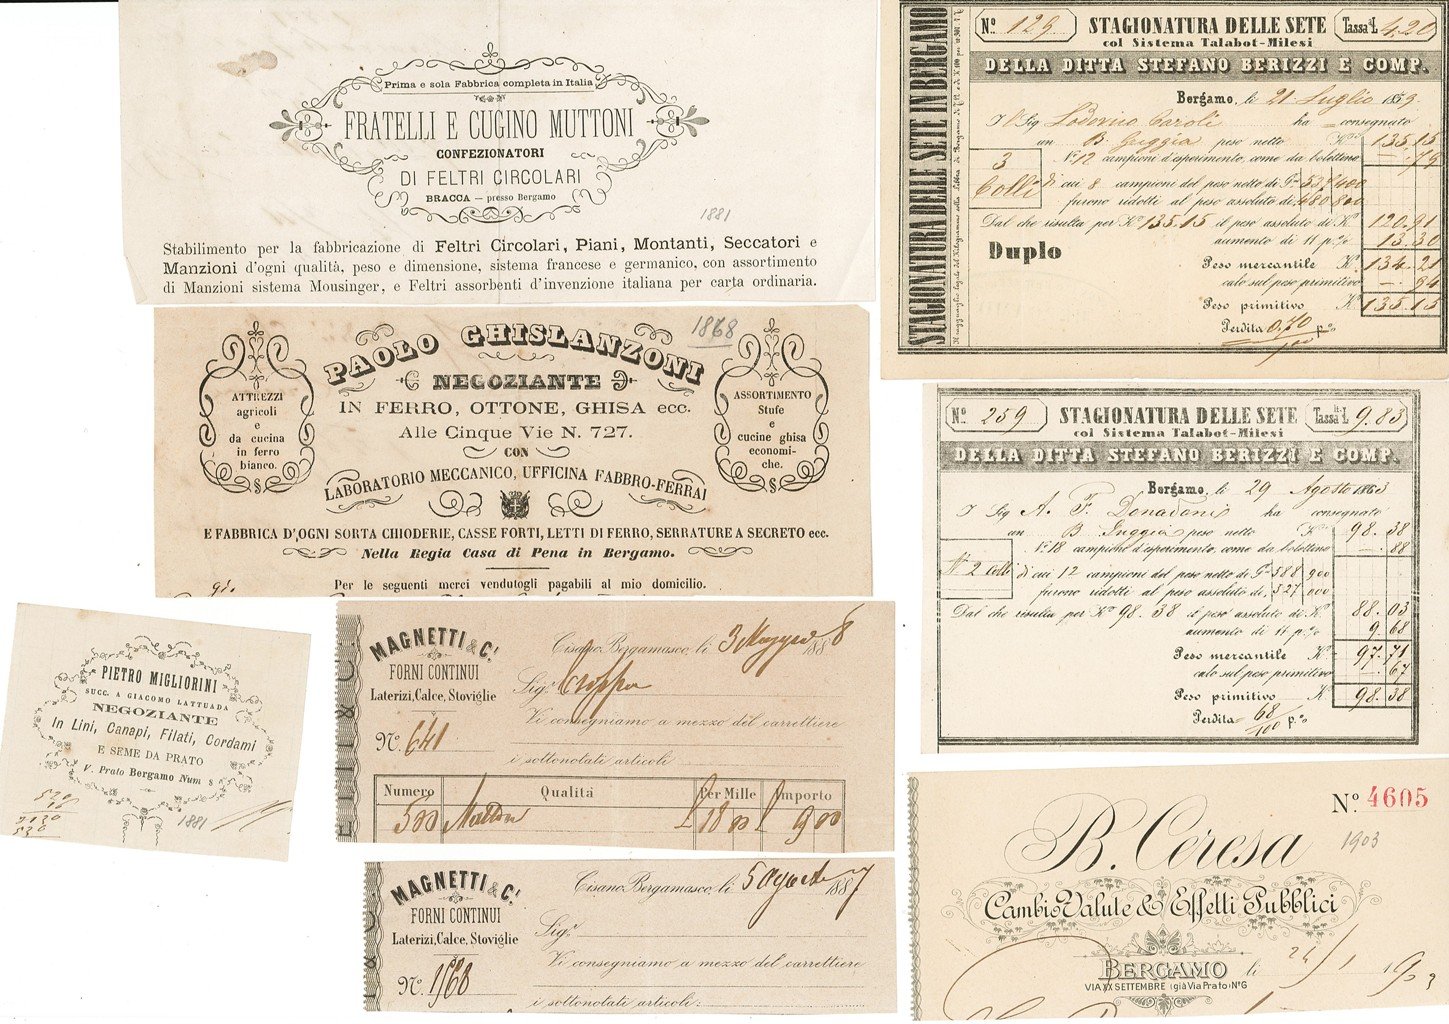 Prima e sola Fabbrica completa in Italia
FRATELLI E CUGINO MUTTONI
CONFEZIONATORI
DI FELTRI CIRCOLARI
BRACCA — presso Bergamo
1881
Stabilimento per la fabbricazione di Feltri Circolari, Piani, Montanti, Seccatori e
Manzioni d'ogni qualità, peso e dimensione, sistema francese e germanico, con assortimento
di Manzioni sistema Mousinger, e Feltri assorbenti d'invenzione italiana per carta ordinaria.
PAOLO GHISLANZONI
1868
NEGOZIANTE
IN FERRO, OTTONE, GHISA ecc.
Alle Cinque Vie N. 727.
CON
LABORATORIO MECCANICO, UFFICINA FABBRO-FERRAI
ATTREZZI
agricoli
e
da cucina
in ferro
bianco.
ASSORTIMENTO
Stufe
e
cucine ghisa
economi-
che.
E FABBRICA D'OGNI SORTA CHIODERIE, CASSE FORTI, LETTI DI FERRO, SERRATURE A SECRETO ecc.
Nella Regia Casa di Pena in Bergamo.
Per le seguenti merci vendutogli pagabili al mio domicilio.
PIETRO MIGLIORINI
SUCC. A GIACOMO LATTUADA
NEGOZIANTE
In Lini, Canapi, Filati, Cordami
E SEME DA PRATO
V. Prato Bergamo Num 8
1881
MAGNETTI & C.
FORNI CONTINUI
Laterizi, Calce, Stoviglie
N. 641
Cisano Bergamasco, li 3 Maggio 1888
Sig.r Croppa
Vi consegniamo a mezzo del carrettiere
i sottonotati articoli
Numero Qualità Per Mille Importo
500 Mattoni £ 18 00 £ 9 00
MAGNETTI & C.
FORNI CONTINUI
Laterizi, Calce, Stoviglie
N. 1568
Cisano Bergamasco, li 5 Agosto 1887
Sig.r
Vi consegniamo a mezzo del carrettiere
i sottonotati articoli:
STAGIONATURA DELLE SETE IN BERGAMO
N. 129. STAGIONATURA DELLE SETE Tassa L. 4.20
col Sistema Talabot-Milesi
DELLA DITTA STEFANO BERIZZI E COMP.
Bergamo, li 21 Luglio 1859.
Il Sig. Lodovico Caroli ha consegnato
un B. Greggia peso netto K. 135.15
N. 12 campioni d'esperimento, come da bolettino . 79
3
Colli
di cui 8 campioni del peso netto di G. 537 400
furono ridotti al peso assoluto di 480 800
Dal che risulta per K. 135.15 il peso assoluto di K. 120.91
aumento di 11 p.% 13.30
Duplo
Peso mercantile K. 134.21
calo sul peso primitivo . 94
Peso primitivo K. 135.15
Perdita 0,70 p.%
N. 259 STAGIONATURA DELLE SETE Tassa L. 9.83
col Sistema Talabot-Milesi
DELLA DITTA STEFANO BERIZZI E COMP.
Bergamo, li 29 Agosto 1863
Il Sig. A. F. Donadoni ha consegnato
un B. Greggia peso netto K. 98.38
N. 18 campioni d'esperimento, come da bolettino . 88
N. 2 Colli
di cui 12 campioni del peso netto di G. 588 900
furono ridotti al peso assoluto di 527 000
Dal che risulta per K. 98.38 il peso assoluto di K. 88.03
aumento di 11 p.% 9.68
Peso mercantile K. 97.71
calo sul peso primitivo . 67
Peso primitivo K. 98.38
Perdita 68/100 p.%
N.º 4605
B. Ceresa
1903
Cambio Valute & Effetti Pubblici
BERGAMO li 24/1 1903
VIA XX SETTEMBRE (già Via Prato) N.º 6